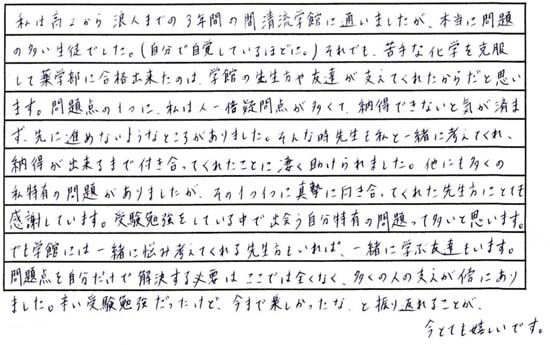 私は高2から浪人までの3年間の間清流学館に通いましたが、本当に問題
の多い生徒でした。(自分で自覚しているほどに。)それでも、苦手な化学を克服
して薬学部に合格出来たのは、学館の先生方や友達が支えてくれたからだと思い
ます。問題点の1つに、私は人一倍疑問点が多くて、納得できないと気が済ま
ず、先に進めないようなところがありました。そんな時先生も私と一緒に考えてくれ、
納得が出来るまで付き合ってくれたことに凄く助けられました。他にも多くの
私特有の問題がありましたが、その1つ1つに真摯に向き合ってくれた先生方にとても
感謝しています。受験勉強をしている中で出会う自分特有の問題って多いと思います。
でも学館には一緒に悩み考えてくれる先生方もいれば、一緒に学ぶ友達もいます。
問題点を自分だけで解決する必要はここでは全くなく、多くの人の支えが傍にあり
ました。辛い受験勉強だったけど、今まで楽しかったな、と振り返れることが、
今とても嬉しいです。